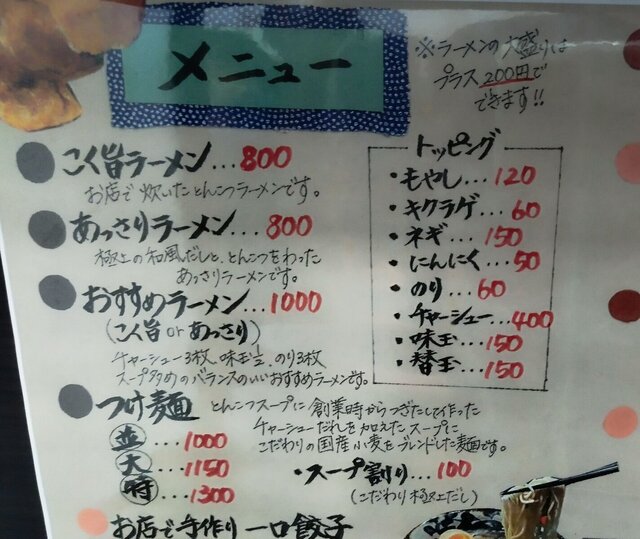 メニュー
※ラーメンの大盛りは
プラス200円で
できます!!
こく旨ラーメン...800
お店で炊いたとんこつラーメンです。
あっさりラーメン...800
極上の和風だしと、とんこつをわった
あっさりラーメンです。
おすすめラーメン...1000
(こく旨orあっさり)
チャーシュー3枚、味玉1/2、のり3枚
スープ多めのバランスのいいおすすめラーメンです。
トッピング
・もやし...120
・キクラゲ...60
・ネギ...150
・にんにく...50
・のり...60
・チャーシュー...400
・味玉...150
・替玉...150
つけ麺
とんこつスープに創業時からつぎたして作った
チャーシューだれを加えたスープに
こだわりの国産小麦をブレンドした麺です。
並...1000
大...1150
特...1300
・スープ割り...100
(こだわり極上だし)
お店で手作り一口餃子